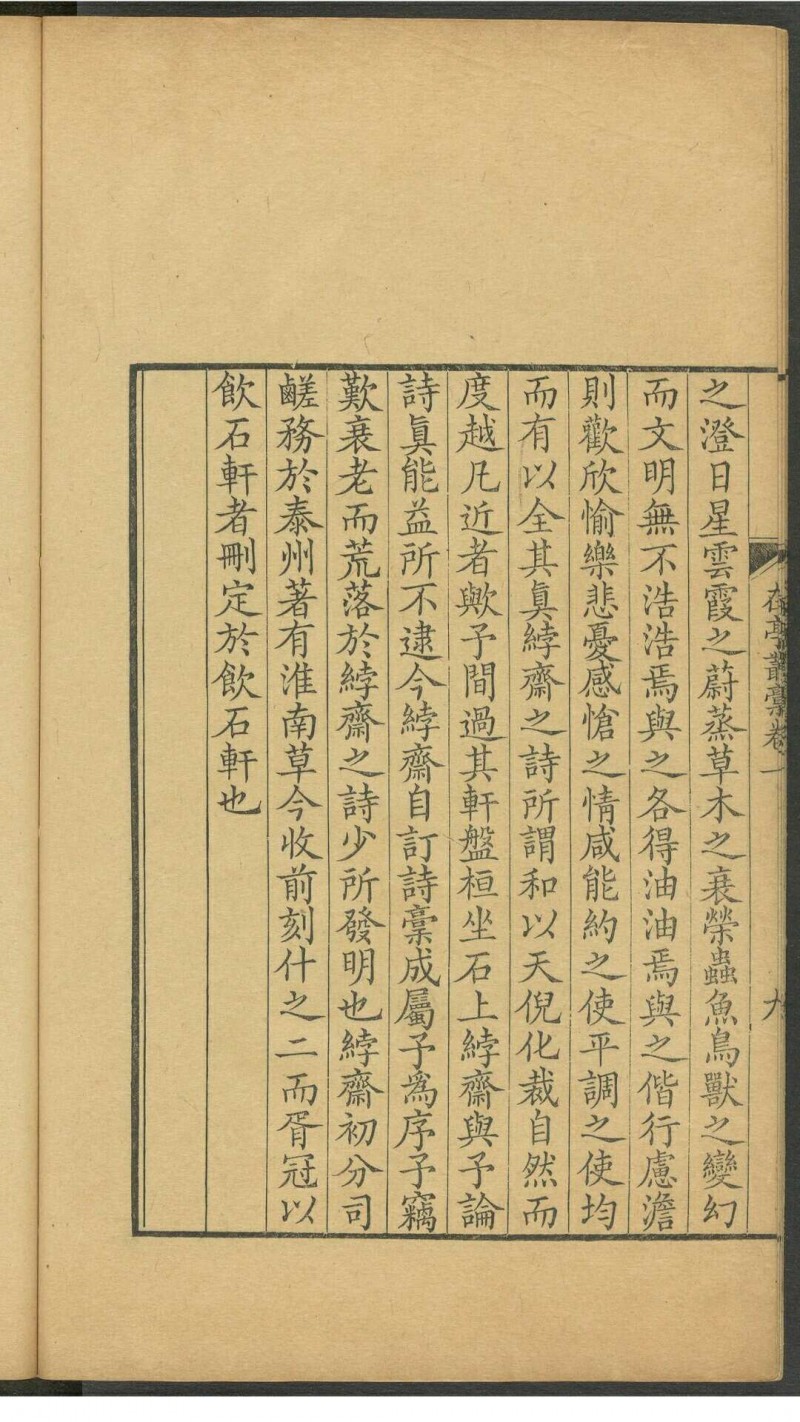 在亭叢稾卷一
九
之澄日星雲霞之蔚蒸草木之衰榮蟲魚鳥獸之變幻
而文明無不浩浩焉與之各得油油焉與之偕行慮澹
則歡欣愉樂悲憂感愴之情咸能約之使平調之使均
而有以全其眞綍齋之詩所謂和以天倪化裁自然而
度越凡近者歟予間過其軒盤桓坐石上綍齋與予論
詩眞能益所不逮今綍齋自訂詩稾成屬予爲序予竊
歎衰老而荒落於綍齋之詩少所發明也綍齋初分司
鹺務於泰州著有淮南草今收前刻什之二而胥冠以
飲石軒者刪定於飲石軒也